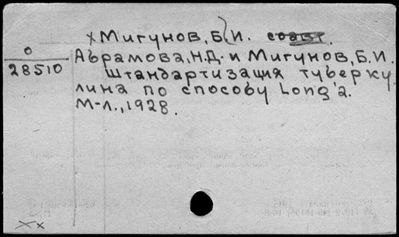 ×Мигунов, Б. И.
0
28510
Абрамова, Н.Д. и Мигунов, Б.И.
Штандартизация туберку
лина по способу Long'a.
М-Л., 1928.
××